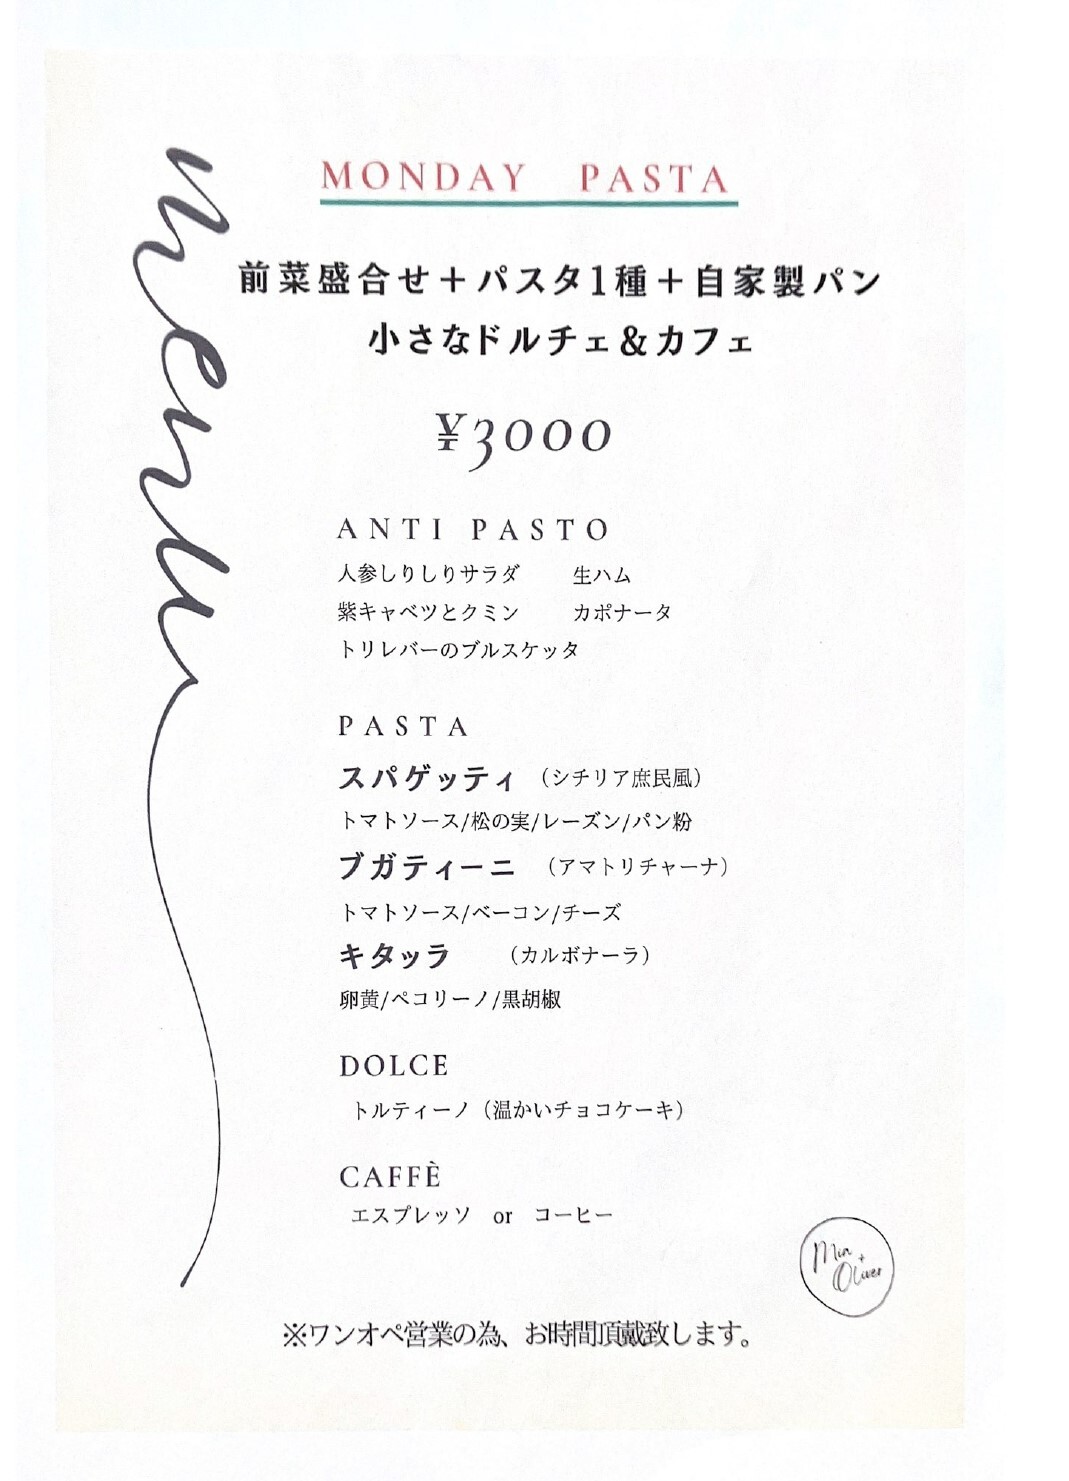 menu
MONDAY PASTA
前菜盛合せ＋パスタ1種＋自家製パン
小さなドルチェ＆カフェ
¥3000
ANTI PASTO
人参しりしりサラダ 生ハム
紫キャベツとクミン カポナータ
トリレバーのブルスケッタ
PASTA
スパゲッティ （シチリア庶民風）
トマトソース/松の実/レーズン/パン粉
ブガティーニ （アマトリチャーナ）
トマトソース/ベーコン/チーズ
キタッラ （カルボナーラ）
卵黄/ペコリーノ/黒胡椒
DOLCE
トルティーノ（温かいチョコケーキ）
CAFFÈ
エスプレッソ or コーヒー
Min +
Oliver
※ワンオペ営業の為、お時間頂戴致します。